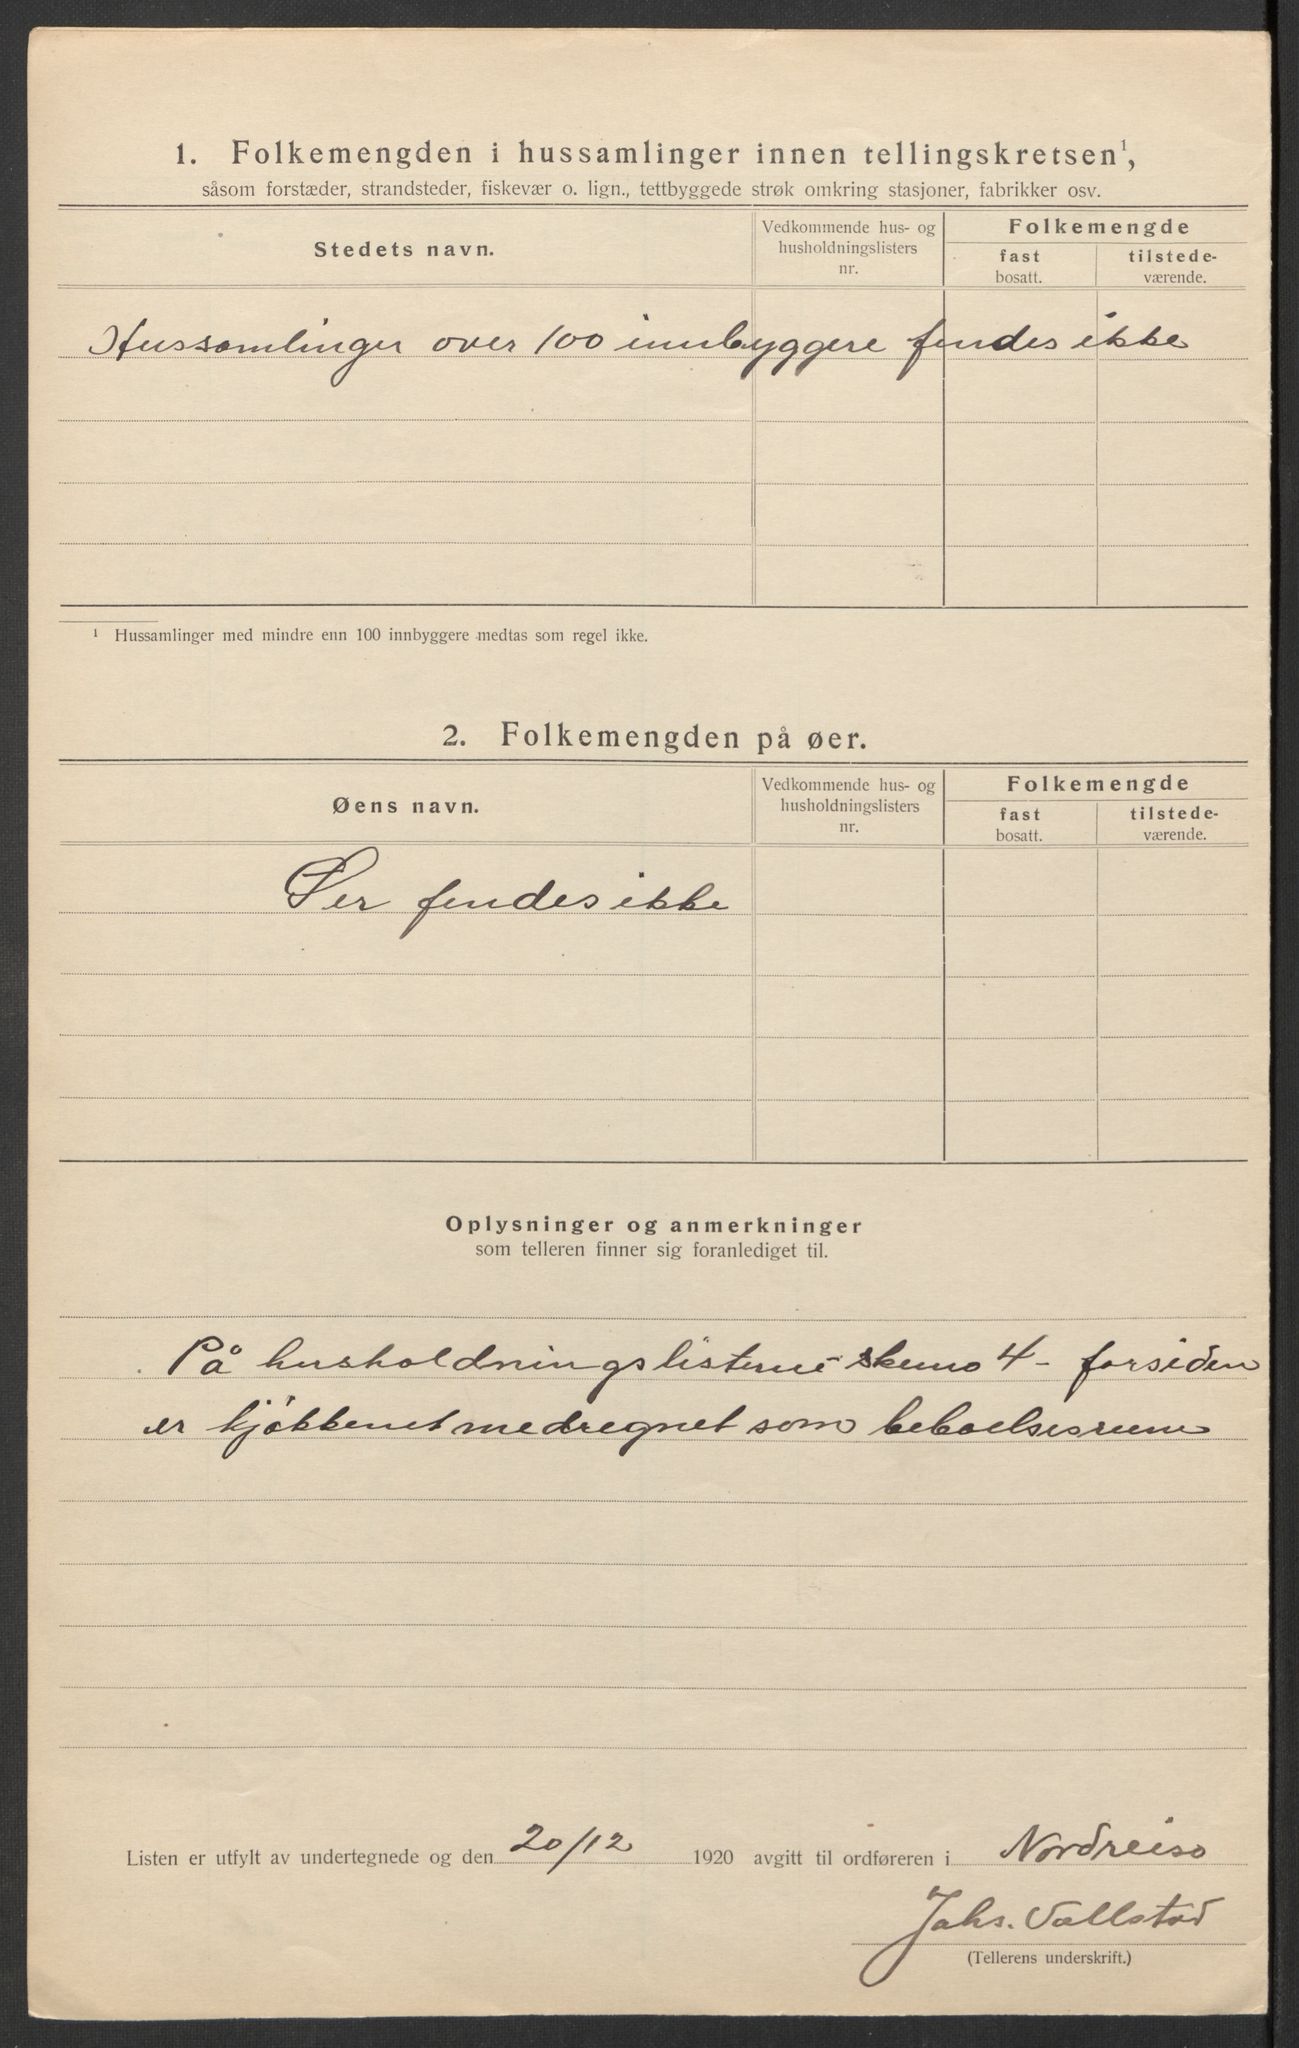 1. Folkemengden i hussamlinger innen tellingskretsen¹,
såsom forstæder, strandsteder, fiskevær o. lign., tettbyggede strøk omkring stasjoner, fabrikker osv.
Stedets navn.
Vedkommende hus- og husholdningslisters nr.
Folkemengde
fast bosatt.
tilstede- værende.
Hussamlinger over 100 innbyggere findes ikke
¹ Hussamlinger med mindre enn 100 innbyggere medtas som regel ikke.
2. Folkemengden på øer.
Øens navn.
Vedkommende hus- og husholdningslisters nr.
Folkemengde
fast bosatt.
tilstede- værende.
Øer findes ikke
Oplysninger og anmerkninger
som telleren finner sig foranlediget til.
På husholdningslisterne skema 4 - forsiden
er kjøkkenet medregnet som beboelsesrum
Listen er utfylt av undertegnede og den 20/12 1920 avgitt til ordføreren i Nordreisa
Johs. Vallstad
(Tellerens underskrift.)